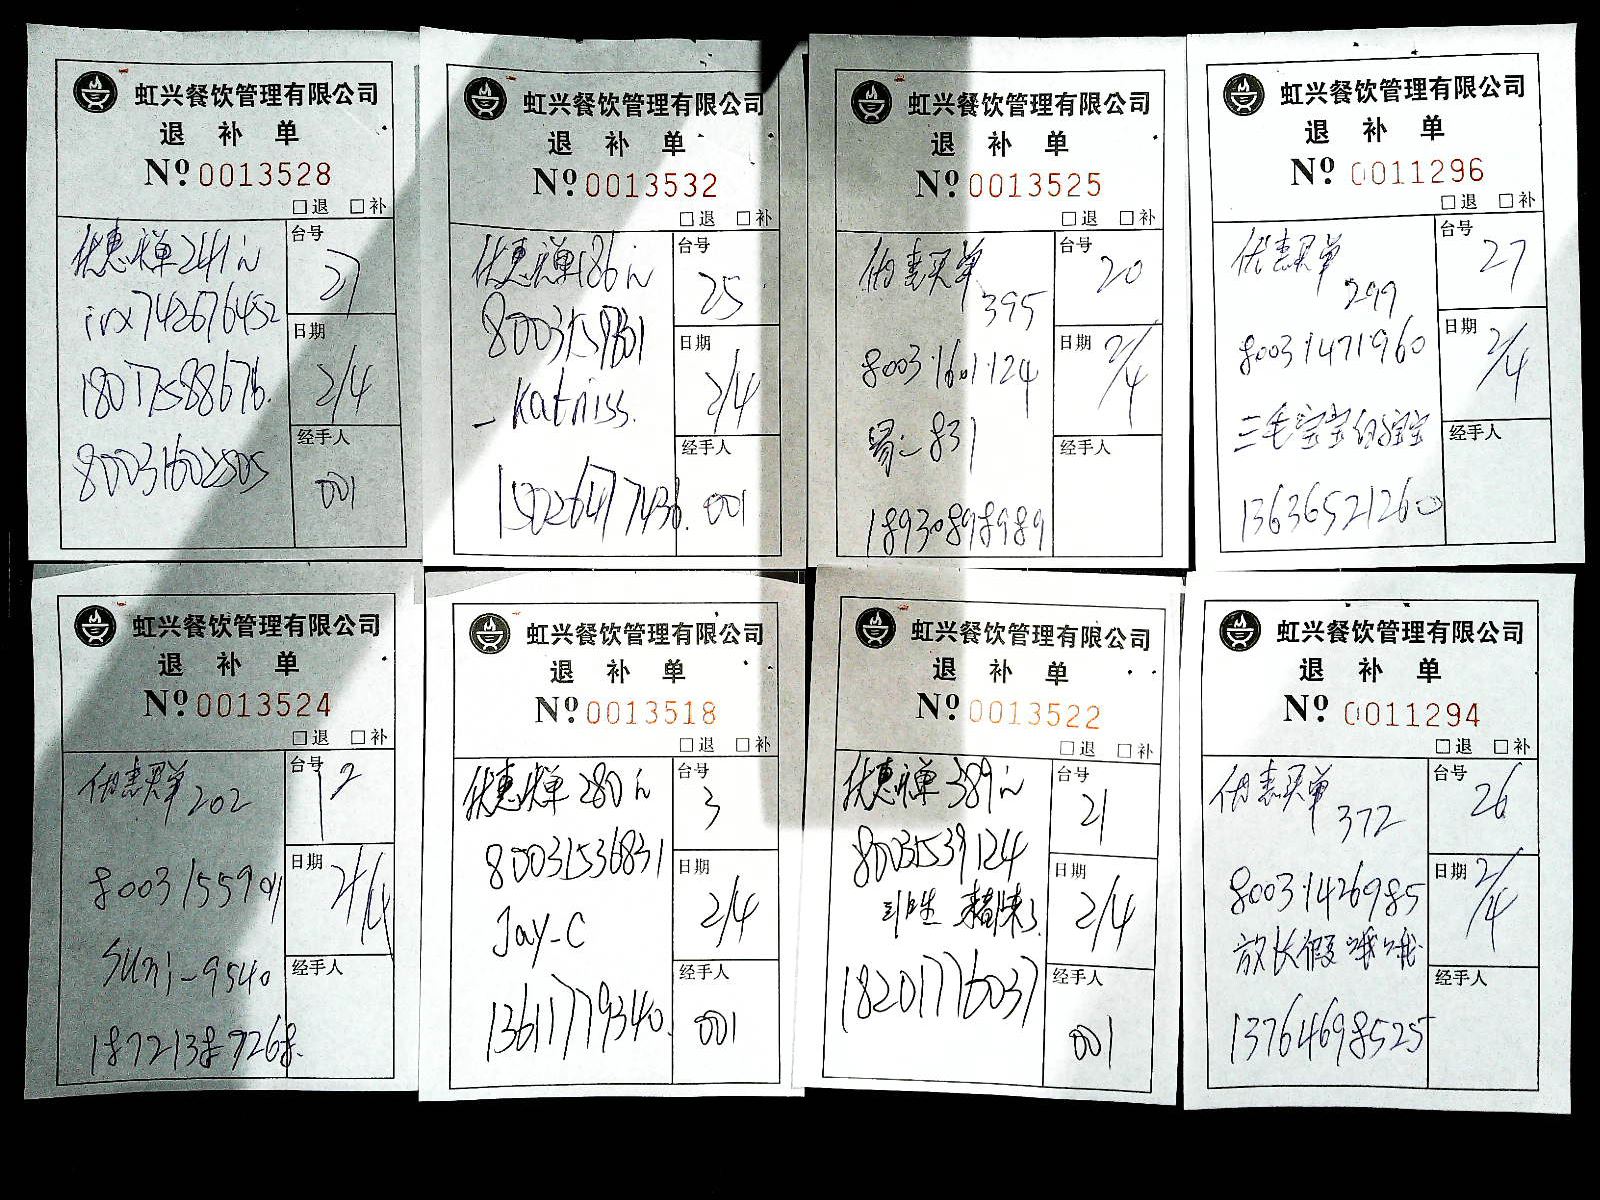 虹兴餐饮管理有限公司
退 补 单
Nº 0013528
□退 □补
优惠买单241元
irx742676452
18017588676.
80031602505
台号
27
日期
2/4
经手人
001
虹兴餐饮管理有限公司
退 补 单
Nº 0013532
□退 □补
优惠买单186元
- Katniss.
15026477436.
台号
25
日期
2/4
经手人
001
虹兴餐饮管理有限公司
退 补 单
Nº 0013525
□退 □补
优惠买单
395
80031601124
831
18930898989
台号
20
日期
2/4
经手人
虹兴餐饮管理有限公司
退 补 单
Nº 0011296
□退 □补
优惠买单
299
80031471960
三毛宝宝的宝宝
13636521260
台号
27
日期
2/4
经手人
虹兴餐饮管理有限公司
退 补 单
Nº 0013524
□退 □补
优惠买单202
Suni-9540
18721389268.
台号
12
日期
2/4
经手人
虹兴餐饮管理有限公司
退 补 单
Nº 0013518
□退 □补
优惠买单280元
80031536831
Jay-C
13611779340.
台号
3
日期
2/4
经手人
001
虹兴餐饮管理有限公司
退 补 单
Nº 0013522
□退 □补
优惠买单389元
80031539124
18201776037
台号
21
日期
2/4
经手人
001
虹兴餐饮管理有限公司
退 补 单
Nº 0011294
□退 □补
优惠买单
372
80031426985
放长假哦哦
13764698525
台号
26
日期
2/4
经手人